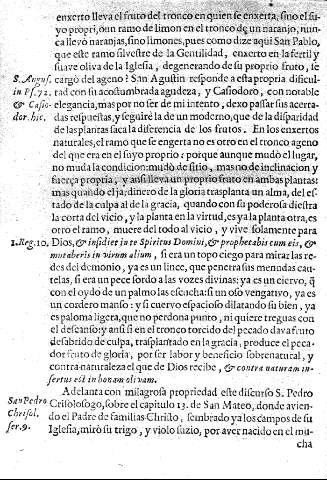 enxerto lleva el fruto del tronco en quien se enxerta, sino el su-
yo propri, o un ramo de limon en el tronco de un naranjo, nun-
ca llevò naranjas, sino limones, pues como dize aqui San Pablo,
que este ramo silvestre de la Gentilidad, enxerto en la fertil y
suave oliva de la Iglesia, degenerando de su proprio fruto, se
S. Augus. cargò del ageno? San Agustin responde a esta propria dificul-
in Ps. 72. tad con su acostumbrada agudeza, y Casiodoro, con notable
& Casio- elegancia, mas por no ser de mi intento, dexo passar sus acerta-
dor. hic. das respuestas, y seguirè la de un moderno, que de la disparidad
de las plantas saca la diferencia de los frutos. En los enxertos
naturales, el ramo que se engerta no es otro en el tronco ageno
del que era en el suyo proprio: porque aunque mudò el lugar,
no muda la condicion: mudò de sitio, mas no de inclinacion y
fuerça propria, y assi lleva un proprio fruto en ambas plantas
mas quando el jardinero de la gloria trasplanta un alma, del es-
tado de la culpa al de la gracia, quando con su poderosa diestra
la corta del vicio, y la planta en la virtud, es ya la planta otra, es
otro el ramo, muere del todo al vicio, y vive solamente para
1. Reg. 10. Dios, & insiliet in te Spiritus Domini, & prophetabis cum eis, &
mutaberis in virum alium, si era un topo ciego para mirar las re-
des del demonio, ya es un lince, que penetra sus menudas cau-
telas, si era un pece sordo a las vozes divinas: ya es un ciervo, q̃
con el oydo de un palmo las escucha: si un oso vengativo, ya es
un cordero manso: y si cuervo espacioso dilatando su bien, ya
es paloma ligera, que no perdona punto, ni quiere treguas con
el descanso: y ansi si en el tronco torcido del pecado dava fruto
desabrido de culpa, trasplantado en la gracia, produce el peca-
dor fruto de gloria, por ser labor y beneficio sobrenatural, y
contra naturaleza el que de Dios recibe, & contra naturam in-
sertus est in bonam olivam.
Adelanta con milagrosa propriedad este discurso S. Pedro
San Pedro Crisologo, sobre el capitulo 13. de San Mateo, donde avien-
Chrisol. do el Padre de familias Christo, sembrado ya los campos de su
ser. 9. Iglesia, mirò su trigo, y violo suzio, por aver nacido en el mu-
cha